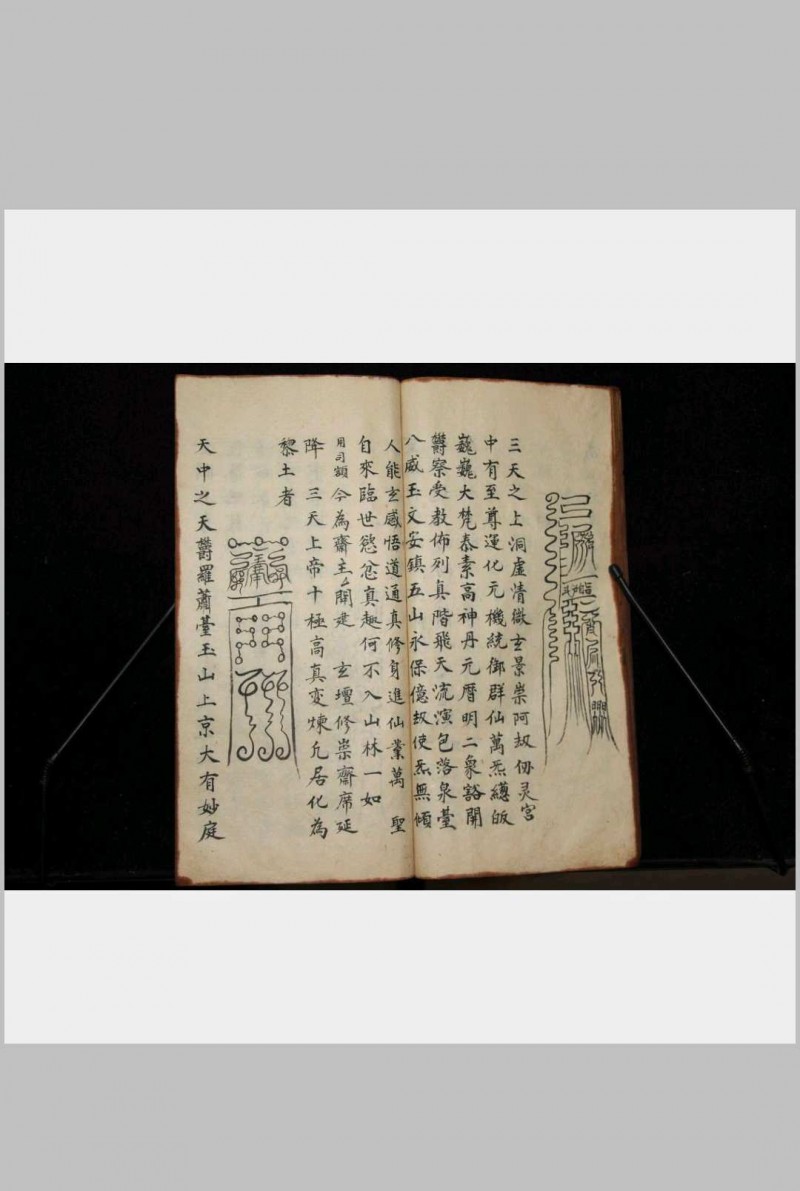 三天之上洞虛清微玄景崇阿刼仞灵宮
中有至尊運化元機統御群仙萬炁
巍巍大梵泰素高神丹元曆明二象豁開
欝察受教佈列真階飛天流演包落泉臺
八威玉文安鎮五山永保億刼使炁無傾
人能玄感悟道通真修身進仙業萬 聖
自來臨世慾忿真趣何不入山林一如
用司額今為齋主厶開建 玄壇修崇齋席延
降 三天上帝十極高真变煉凢居化為
黎土者
天中之天欝羅蕭臺玉山上京大有妙庭